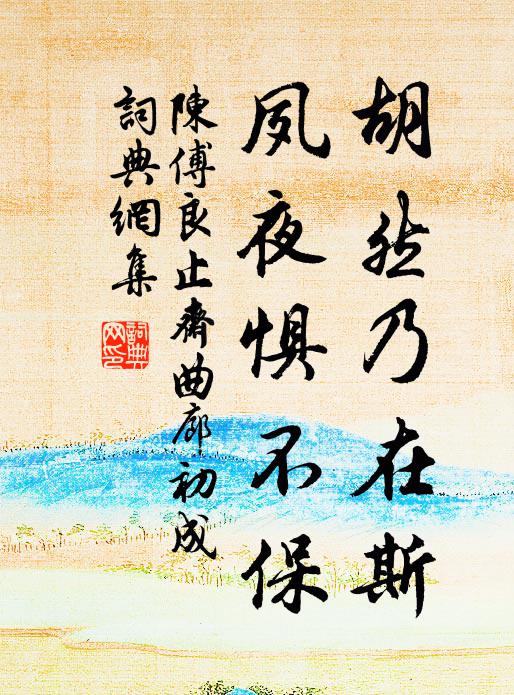 胡然乃在斯
夙夜惧不保
陳傅良止齋曲廊初成
詞典網集
詞典
网印